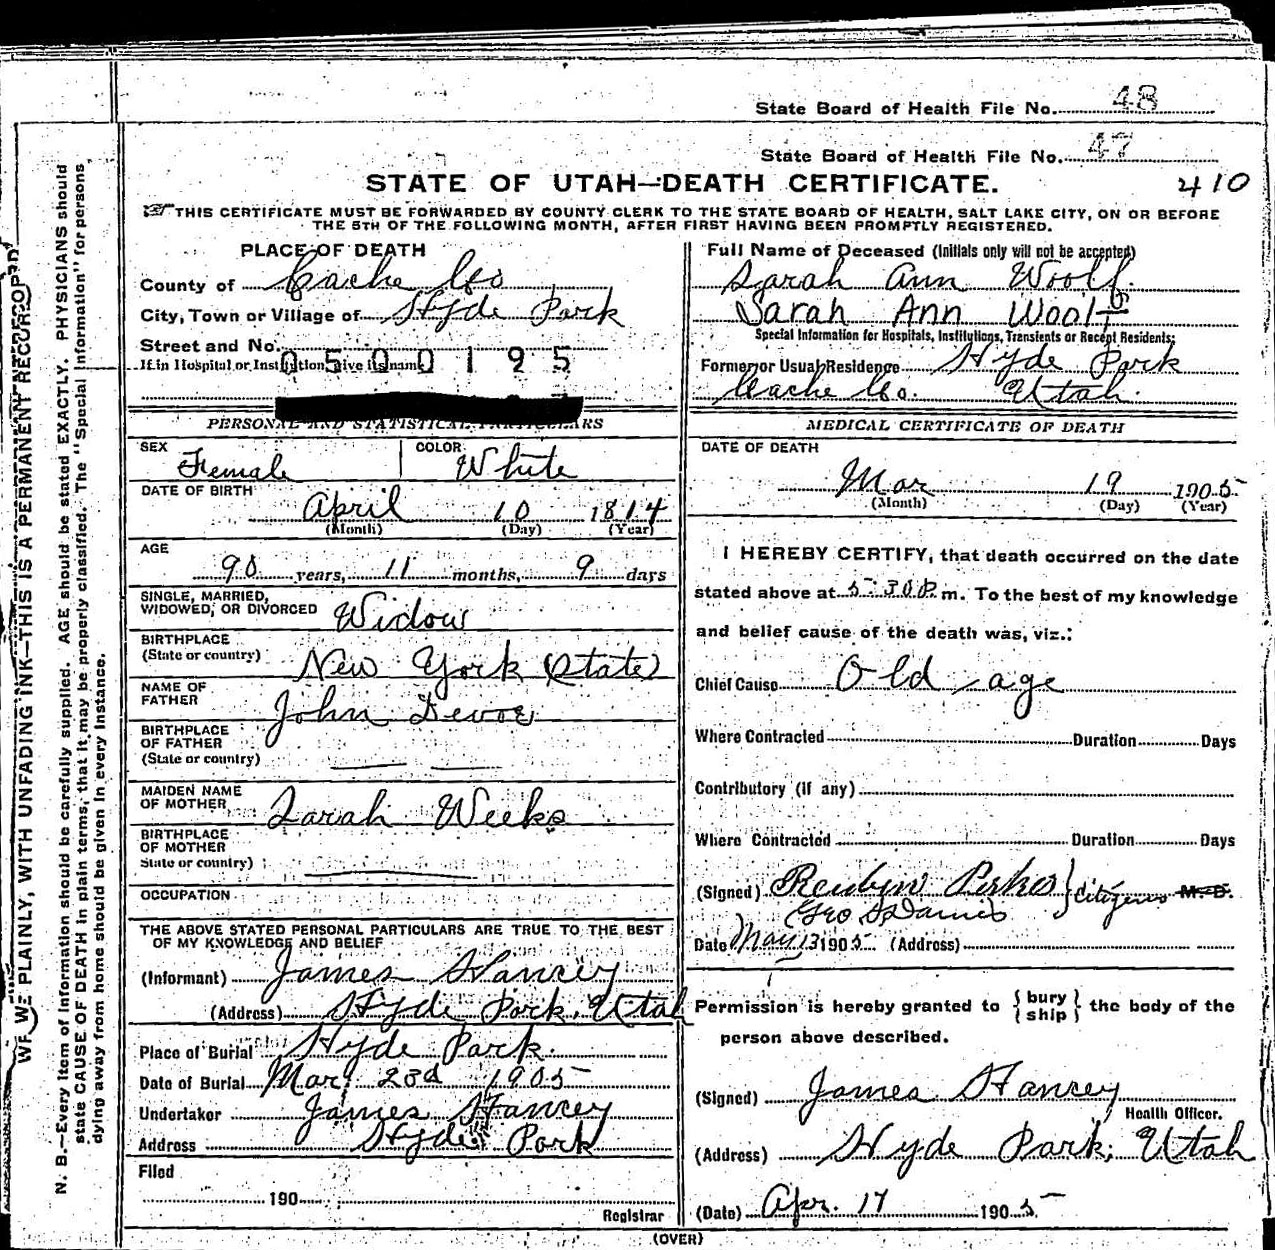 State Board of Health File No. 48
State Board of Health File No. 47
STATE OF UTAH—DEATH CERTIFICATE. 410
THIS CERTIFICATE MUST BE FORWARDED BY COUNTY CLERK TO THE STATE BOARD OF HEALTH, SALT LAKE CITY, ON OR BEFORE
THE 5TH OF THE FOLLOWING MONTH, AFTER FIRST HAVING BEEN PROMPTLY REGISTERED.
PLACE OF DEATH
County of Cache Co
City, Town or Village of Hyde Park
Street and No.
If in Hospital or Institution, give its name
0500195
PERSONAL AND STATISTICAL PARTICULARS
SEX Female COLOR White
DATE OF BIRTH
April 10 1814
(Month) (Day) (Year)
AGE
90 years, 11 months, 9 days
SINGLE, MARRIED,
WIDOWED, OR DIVORCED Widow
BIRTHPLACE
(State or country) New York (State)
NAME OF
FATHER John Devoe
BIRTHPLACE
OF FATHER
(State or country)
MAIDEN NAME
OF MOTHER Sarah Weeks
BIRTHPLACE
OF MOTHER
State or country)
OCCUPATION
THE ABOVE STATED PERSONAL PARTICULARS ARE TRUE TO THE BEST
OF MY KNOWLEDGE AND BELIEF
(Informant) James Hancey
(Address) Hyde Park, Utah
Place of Burial Hyde Park.
Date of Burial Mar. 23d 1905
Undertaker James Hancey
Address Hyde Park
Filed
190
Registrar
Full Name of Deceased (Initials only will not be accepted)
Sarah Ann Woolf.
Sarah Ann Woolf
Special Information for Hospitals, Institutions, Transients or Recent Residents;
Former or Usual Residence Hyde Park
Cache Co. Utah.
MEDICAL CERTIFICATE OF DEATH
DATE OF DEATH
Mar 19 1905
(Month) (Day) (Year)
I HEREBY CERTIFY, that death occurred on the date
stated above at 5:30 P. m. To the best of my knowledge
and belief cause of the death was, viz.:
Chief Cause Old age
Where Contracted Duration Days
Contributory (If any)
Where Contracted Duration Days
(Signed) Perkes } Citizens M. D.
Geo
Date May 13 1905 (Address)
Permission is hereby granted to { bury ship } the body of the
person above described.
(Signed) James Hancey
Health Officer.
(Address) Hyde Park, Utah
(Date) Apr. 17 1905
(OVER)
WRITE PLAINLY, WITH UNFADING INK—THIS IS A PERMANENT RECORD
N. B.—Every item of information should be carefully supplied. AGE should be stated EXACTLY. PHYSICIANS should
state CAUSE OF DEATH in plain terms, that it may be properly classified. The "Special Information" for persons
dying away from home should be given in every instance.